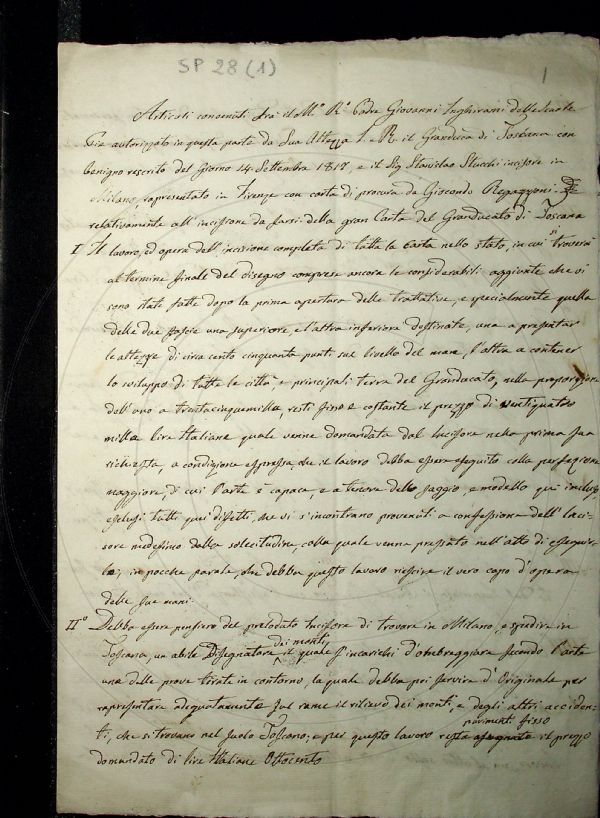 SP 28 (1)
1
Articoli convenuti fra il M.º R.º Padre Giovanni Inghirami delle Scuole
Pie autorizzato in questa parte da Sua Altezza I. e R. il Granduca di Toscana con
benigno rescritto del Giorno 14 Settembre 1817, e il Sig Stanislao Stucchi incisore in
Milano, rappresentato in Firenze con carta di procura da Giocondo Regazzoni.
relativamente all' incisione da farsi della gran Carta del Granducato di Toscana
I Il lavoro, ed opera dell' incisione completa di tutta la Carta nello stato, in cui si troverà
al termine finale del disegno comprese ancora le considerabili aggiunte che vi
sono state fatte dopo la prima apertura delle trattative, e specialmente quella
delle due fascie una superiore, e l'altra inferiore destinate, una a presentar
le altezze di circa cento cinquanta punti sul livello del mare, l'altra a contener
lo sviluppo di tutte le città, e principali terre del Granducato, nella proporzione
dell' uno a trentacinquemilla, resti fisso e costante il prezzo di ventiquatro
milla lire Italiane quale venne domandata dal Incisore nella prima sua
richiesta, a condizione espressa, che il lavoro debba essere eseguito colla perfezione
maggiore, di cui l'arte è capace, e a tenore dello saggio, e modello qui incluso
esclusi tutti quei difetti, che vi s'incontrano provenuti a confessione dell' Inci-
sore medesimo dalla solecitudine, colla quale venne pressato nell'atto di esseguir-
lo, in poche parole, che debba questo lavoro riescire il vero capo d'opera
delle sue mani.
IIº Debba essere pensiero del prelodato Incisore di trovare in Milano, e spedire in
Toscana, un abile Disegnatore dei monti, il quale s'incarichi d'ombreggiare secondo l'arte
una delle prove tirate in contorno, la quale debba poi servire d'Originale per
rapresentare adequatamente sul rame il rilievo dei monti, e degli altri acciden-
ti, che si trovano nel suolo Toscano; e per questo lavoro resta parimenti fisso il prezzo
domandato di lire Italiane Ottocento